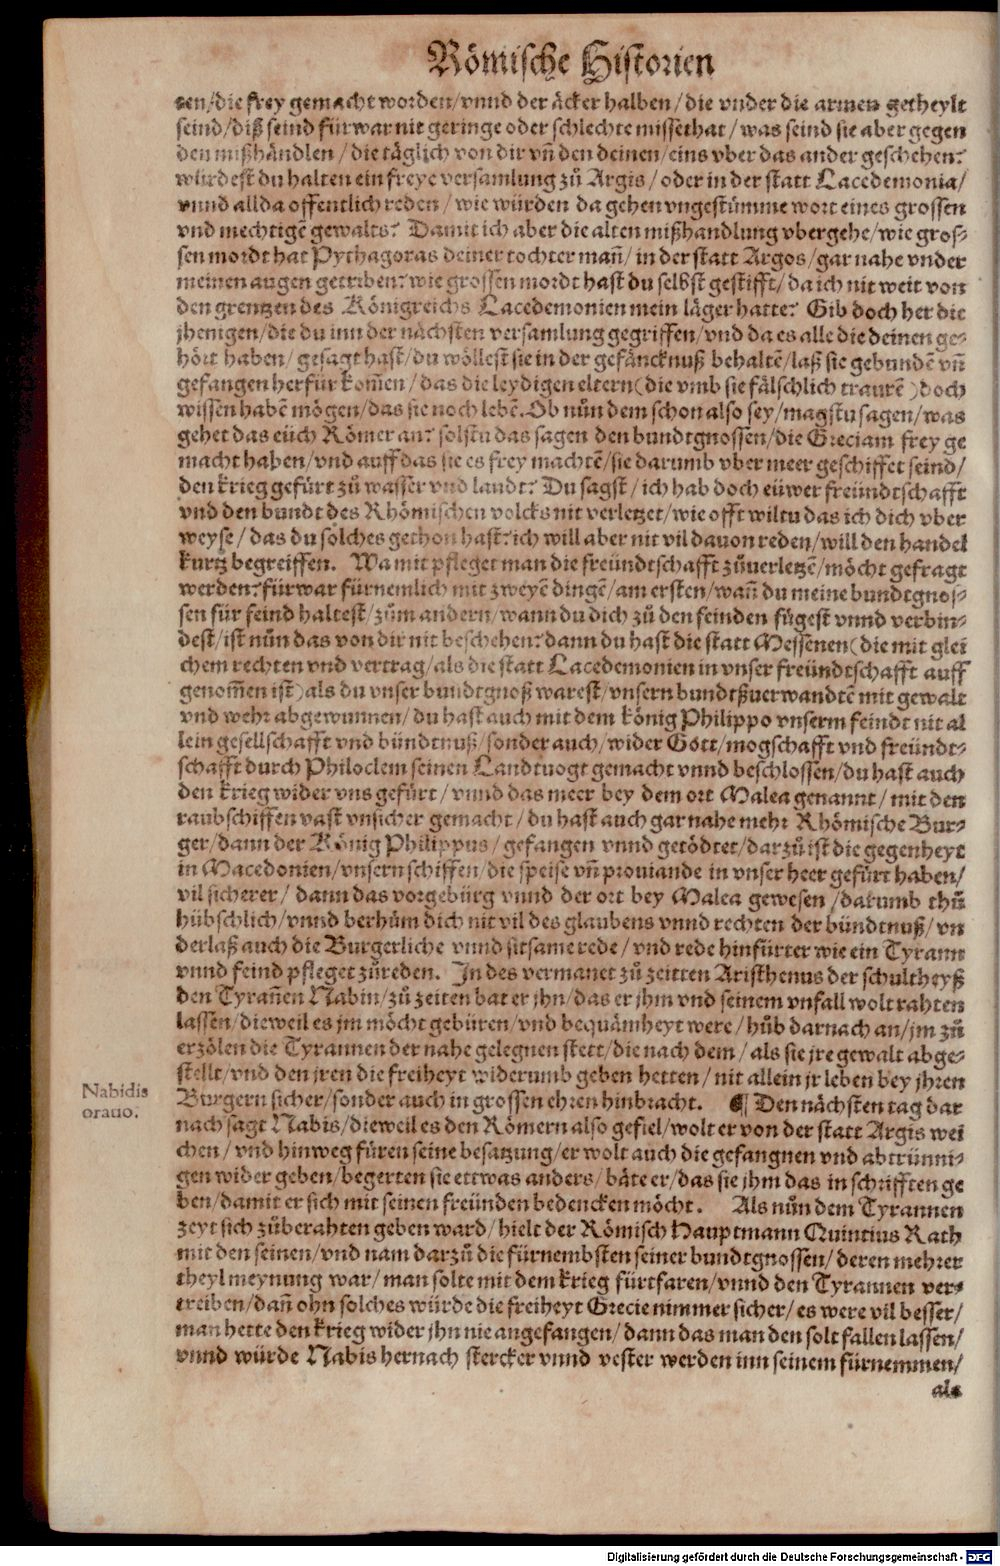 Römische Historien
ten/die frey gemacht worden/vnnd der äcker halben/die vnder die armen getheylt
seind/diß seind fürwar nit geringe oder schlechte missethat/was seind sie aber gegen
den mißhändlen/die täglich von dir vñ den deinen/eins vber das ander geschehen?
würdest du halten ein freye versamlung zů Argis/oder in der statt Lacedemonia/
vnnd allda offentlich reden/wie würden da gehen vngestümme wort eines grossen
vnd mechtigẽ gewalts? Damit ich aber die alten mißhandlung vbergehe/wie gros-
sen mordt hat Pythagoras deiner tochter mañ/in der statt Argos/gar nahe vnder
meinen augen getriben? wie grossen mordt hast du selbst gestifft/da ich nit weit von
den grentzen des Königreichs Lacedemonien mein läger hatte? Gib doch her die
jhenigen/die du inn der nächsten versamlung gegriffen/vnd da es alle die deinen ge-
hört haben/gesagt hast/du wöllest sie in der gefäncknuß behaltẽ/laß sie gebundẽ vñ
gefangen herfür kom̃en/das die leydigen eltern(die vmb sie fälschlich traurẽ)doch
wissen habẽ mögen/das sie noch lebẽ. Ob nůn dem schon also sey/magstu sagen/was
gehet das eüch Römer an? solstu das sagen den bundtgnossen/die Greciam frey ge
macht haben/vnd auff das sie es frey machtẽ/sie darumb vber meer geschiffet seind/
den krieg gefürt zů wasser vnd landt? Du sagst/ich hab doch eüwer freündtschafft
vnd den bundt des Rhömischen volcks nit verletzet/wie offt wiltu das ich dich vber
weyse/das du sölches gethon hast? ich will aber nit vil dauon reden/will den handel
kurtz begreiffen. Wa mit pfleget man die freündtschafft zůuerletzẽ/möcht gefragt
werden? fürwar fürnemlich mit zweyẽ dingẽ/am ersten/wañ du meine bundtgnos-
sen für feind haltest/zům andern/wann du dich zů den feinden fügest vnnd verbin-
dest/ist nůn das von dir nit beschehen? dann du hast die statt Messenen(die mit glei
chem rechten vnd vertrag/als die statt Lacedemonien in vnser freündtschafft auff
genom̃en ist)als du vnser bundtgnoß warest/vnsern bundtßuerwandtẽ mit gewalt
vnd wehr abgewunnen/du hast auch mit dem könig Philippo vnserm feindt nit al
lein gesellschafft vnd bündtnuß/sonder auch/wider Gott/mogschafft vnd freündt-
schafft durch Philoclem seinen Landtuogt gemacht vnnd beschlossen/du hast auch
den krieg wider vns gefürt/vnnd das meer bey dem ort Malea genannt/mit den
raubschiffen vast vnsicher gemacht/du hast auch gar nahe mehr Rhömische Bur-
ger/dann der König Philippus/gefangen vnnd getödtet/darzů ist die gegenheyt
in Macedonien/vnsern schiffen/die speise vñ prouiande in vnser heer gefürt haben/
vil sicherer/dann das vorgebürg vnnd der ort bey Malea gewesen/darumb thů
hübschlich/vnnd berhům dich nit vil des glaubens vnnd rechten der bündtnuß/vn
derlaß auch die Burgerliche vnnd sitsame rede/vnd rede hinfürter wie ein Tyrann
vnnd feind pfleget zůreden. In des vermanet zů zeitten Aristhenus der schultheyß
den Tyrañen Nabin/zů zeiten bat er jhn/das er jhm vnd seinem vnfall wolt rahten
lassen/dieweil es jm möcht gebüren/vnd bequämheyt were/hůb darnach an/jm zů
erzölen die Tyrannen der nahe gelegnen stett/die nach dem/als sie jre gewalt abge-
stellt/vnd den jren die freiheyt widerumb geben hetten/nit allein jr leben bey jhren
Burgern sicher/sonder auch in grossen ehren hinbracht. ¶ Den nächsten tag dar
nach sagt Nabis/dieweil es den Römern also gefiel/wolt er von der statt Argis wei
chen/vnd hinweg füren seine besatzung/er wolt auch die gefangnen vnd abtrünni-
gen wider geben/begerten sie ettwas anders/bäte er/das sie jhm das in schrifften ge
ben/damit er sich mit seinen freünden bedencken möcht. Als nůn dem Tyrannen
zeyt sich zůberahten geben ward/hielt der Römisch Hauptmann Quintius Rath
mit den seinen/vnd nam darzů die fürnembsten seiner bundtgnossen/deren mehrer
theyl meynung war/man solte mit dem krieg fürtfaren/vnnd den Tyrannen ver-
treiben/dañ ohn solches würde die freiheyt Grecie nimmer sicher/es were vil besser/
man hette den krieg wider jhn nie angefangen/dann das man den solt fallen lassen/
vnnd würde Nabis hernach stercker vnnd vester werden inn seinem fürnemmen/
als
Nabidis
oratio.
Digitalisierung gefördert durch die Deutsche Forschungsgemeinschaft - DFG